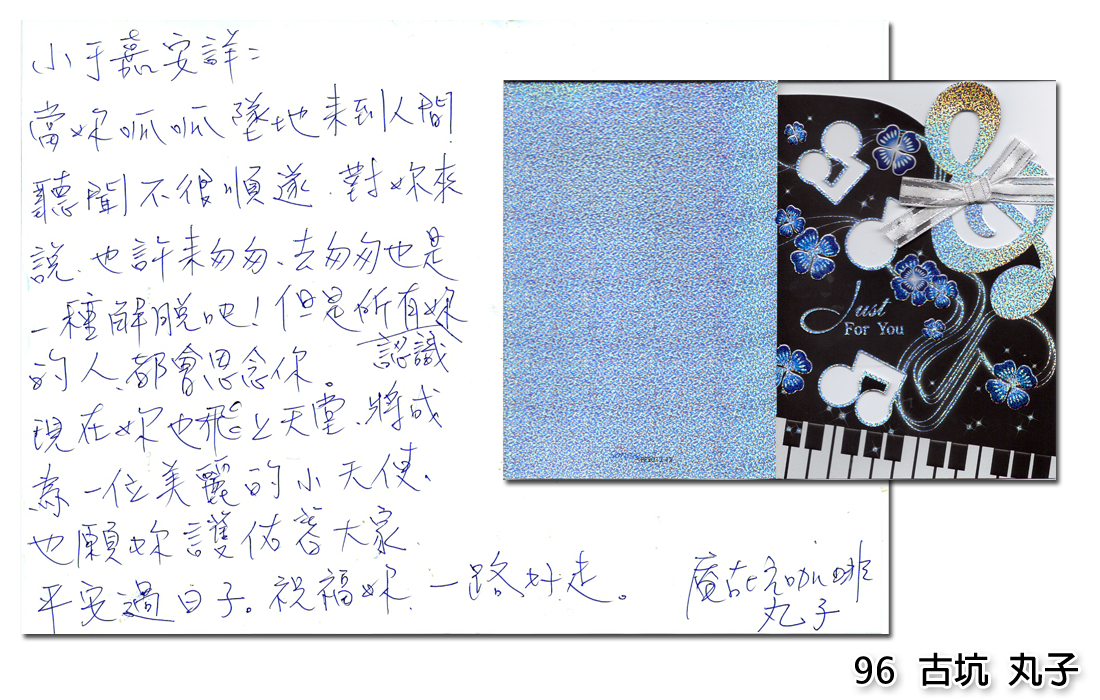 小于嘉安詳：
當妳呱呱墜地來到人間
聽聞不很順遂、對妳來
說、也許來匆匆、去匆匆也是
一種解脫吧！但是所有妳
認識
的人、都會思念你。
現在妳也飛上天堂、將成
為一位美麗的小天使、
也願妳護佑著大家
平安過日子。祝福妳 一路好走。
丸子
Just
For You
96 古坑 丸子